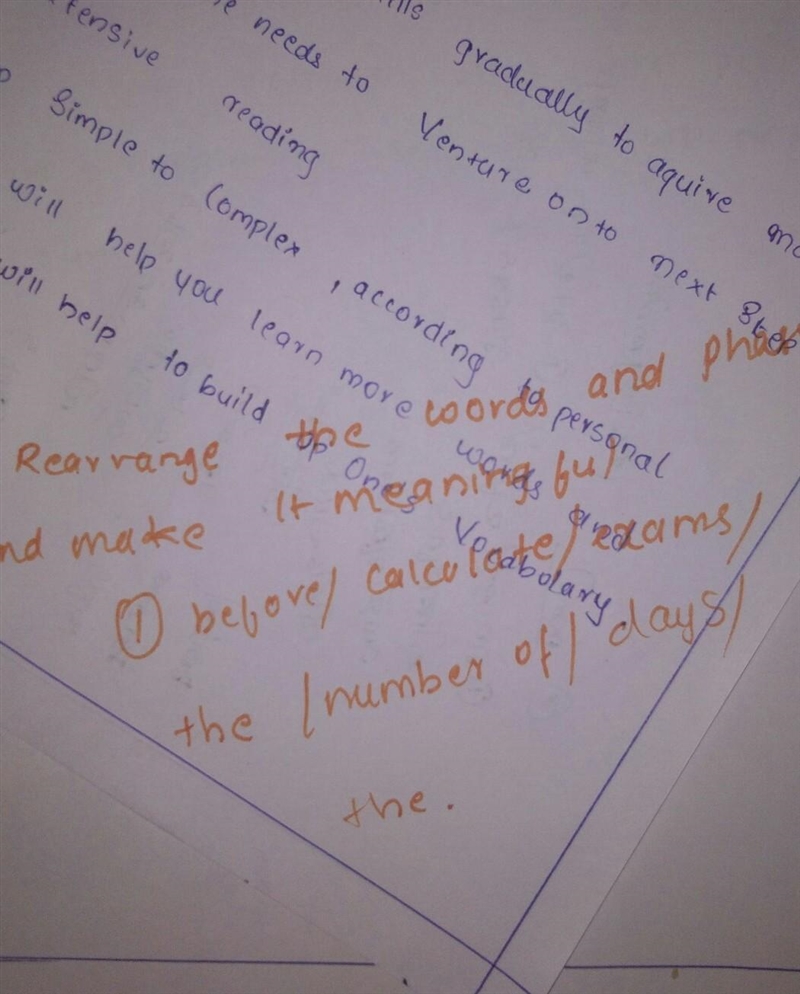 gradually to aquire
needs to Venture onto next Step
reading
Simple to Complex, according to personal
will help you learn more words and
will help to build up Ones Vocabulary
Rearrange the words and
make It meaningful
① before/ calculate/ exams/
the /number of/ days/
the.